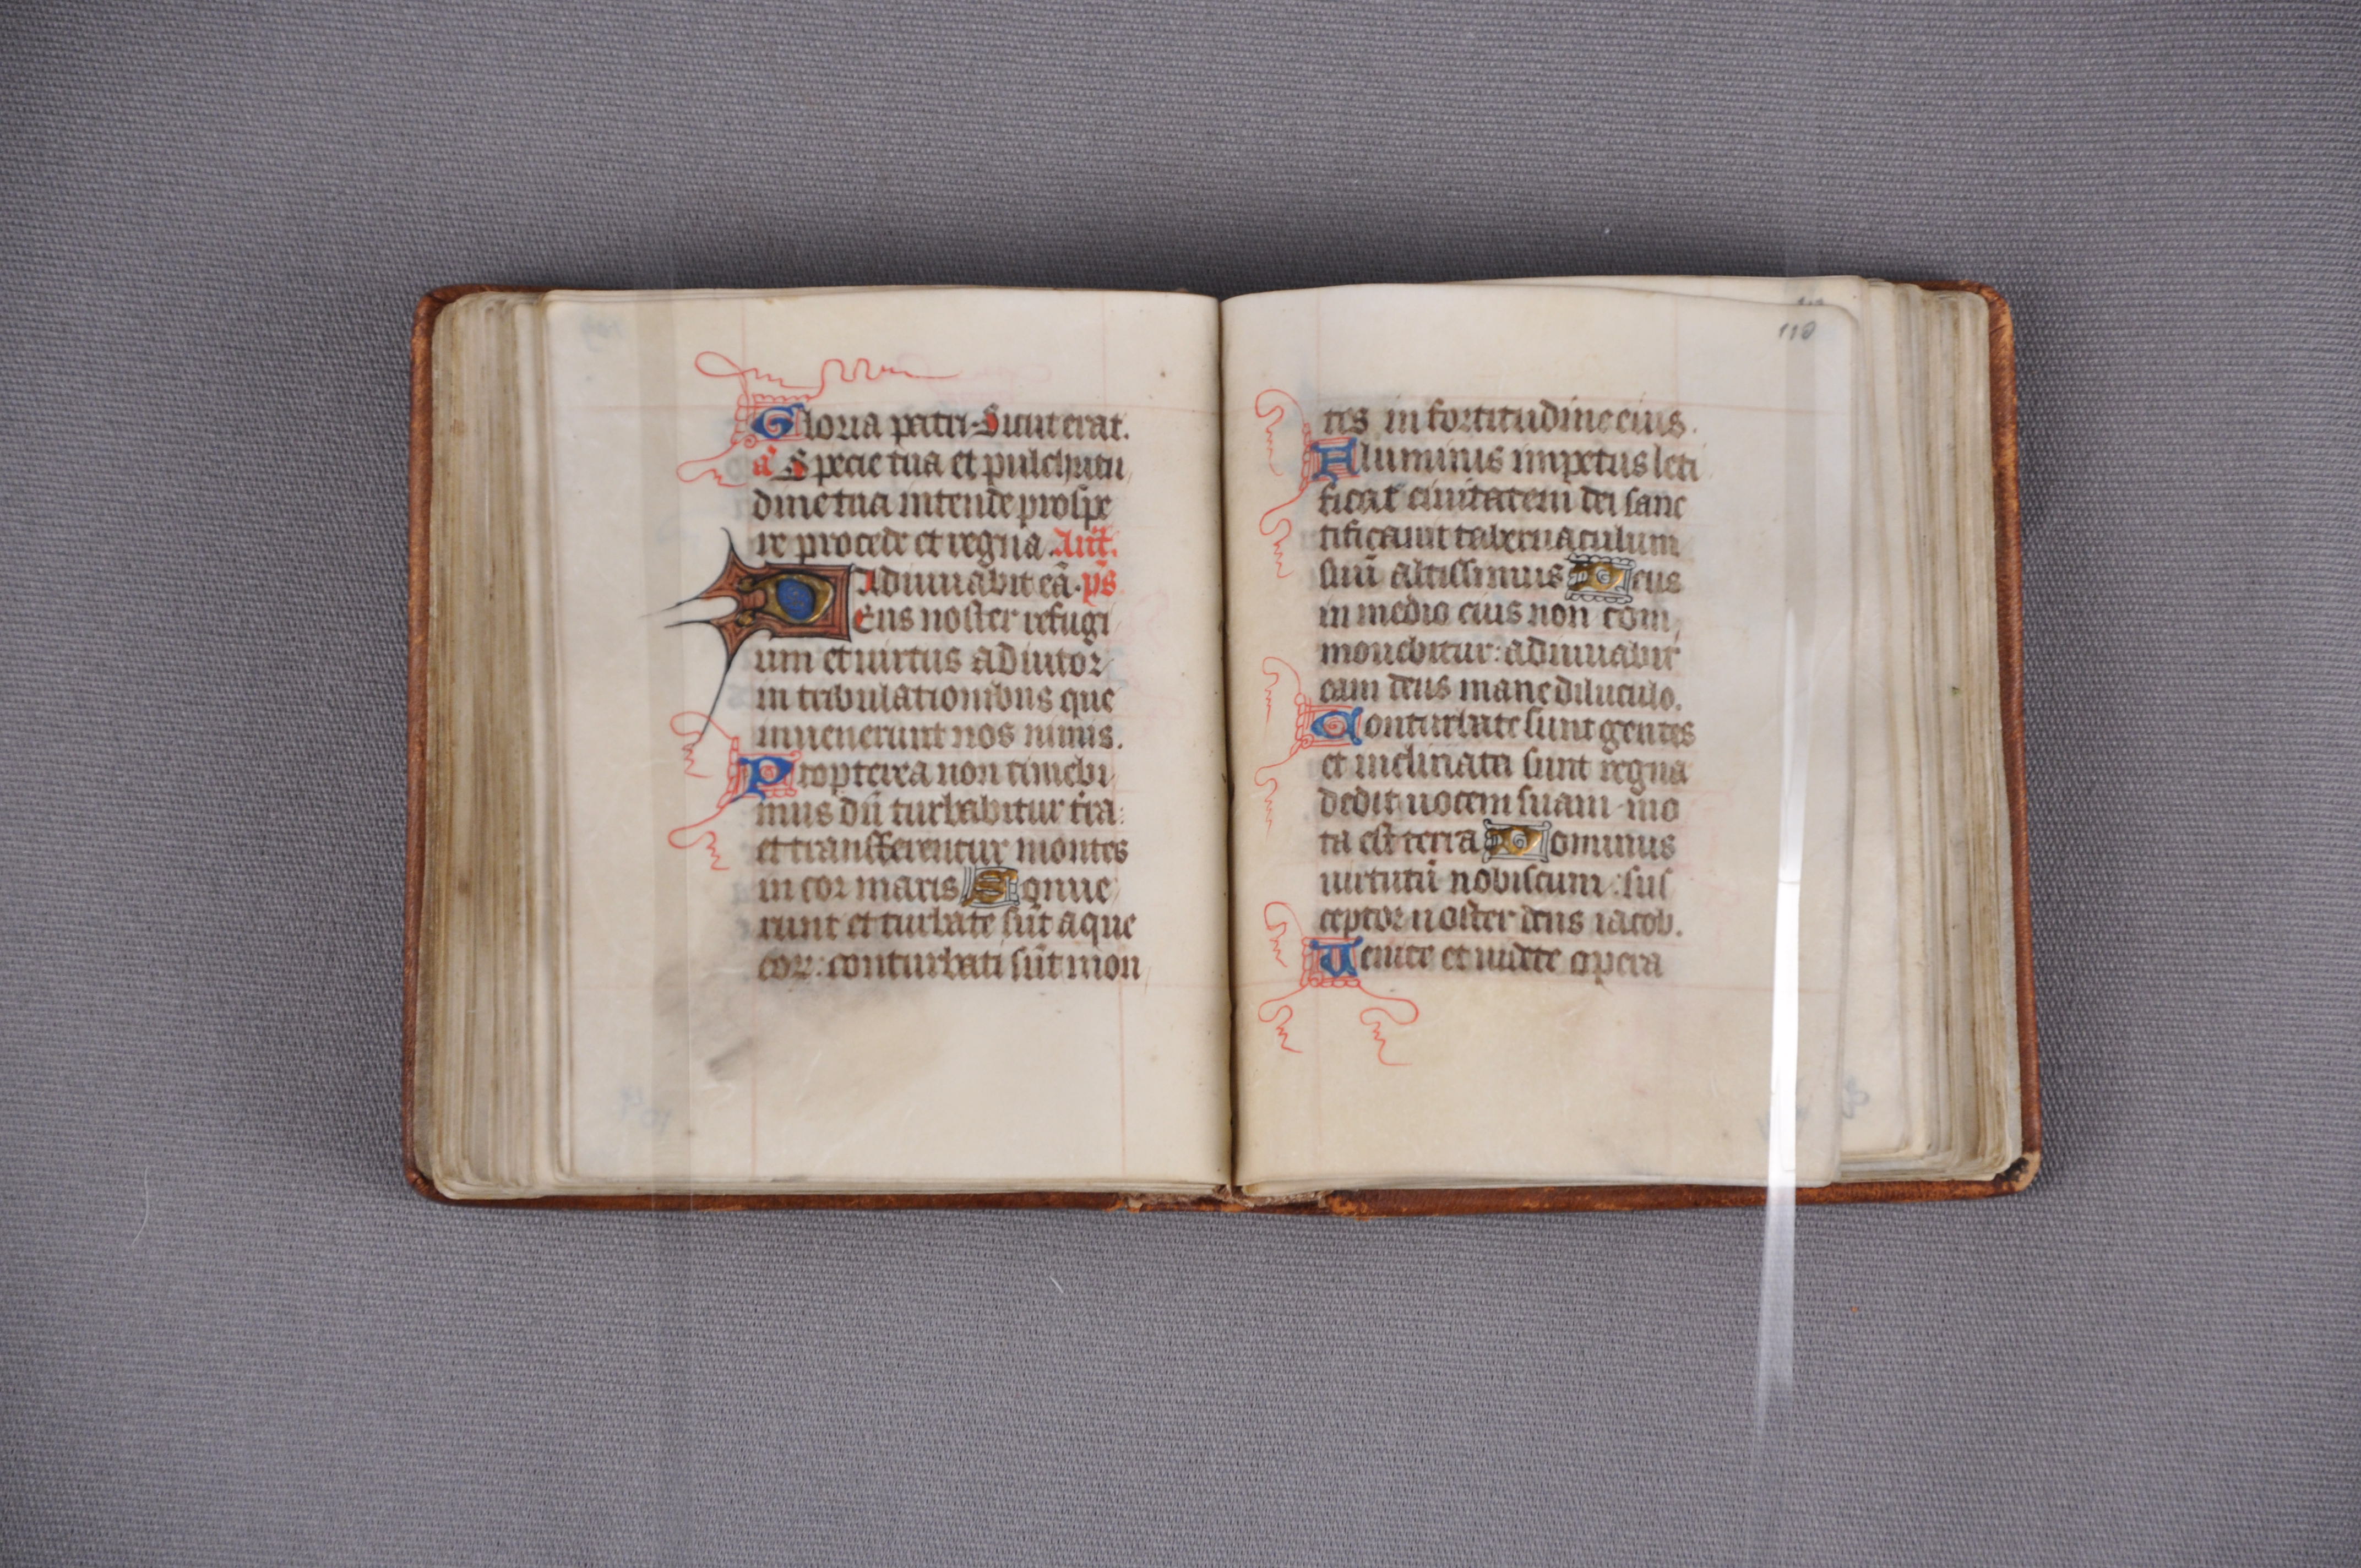 Gloria patri. Sicut erat.
a Specie tua et pulchritu
dine tua intende prospe
re procede et regna. Ant.
Adiuuabit eã. ps
Deus noster refugi
um et uirtus adiutor
in tribulationibus que
inuenerunt nos nimis.
Propterea non timebi
mus dũ turbabitur tr̃a:
et transferentur montes
in cor maris Sonue
runt et turbate sũt aque
eor: conturbati sũt mon
110
tes in fortitudine eius.
Fluminis impetus leti
ficat ciuitatem dei sanc
tificauit tabernaculum
suũ altissimus Deus
in medio eius non com
mouebitur: adiuuabit
eam deus mane diluculo.
Conturbate sunt gentes
et inclinata sunt regna
dedit uocem suam mo
ta est terra Dominus
uirtutũ nobiscum: sus
ceptor noster deus iacob.
Uenite et uidete opera